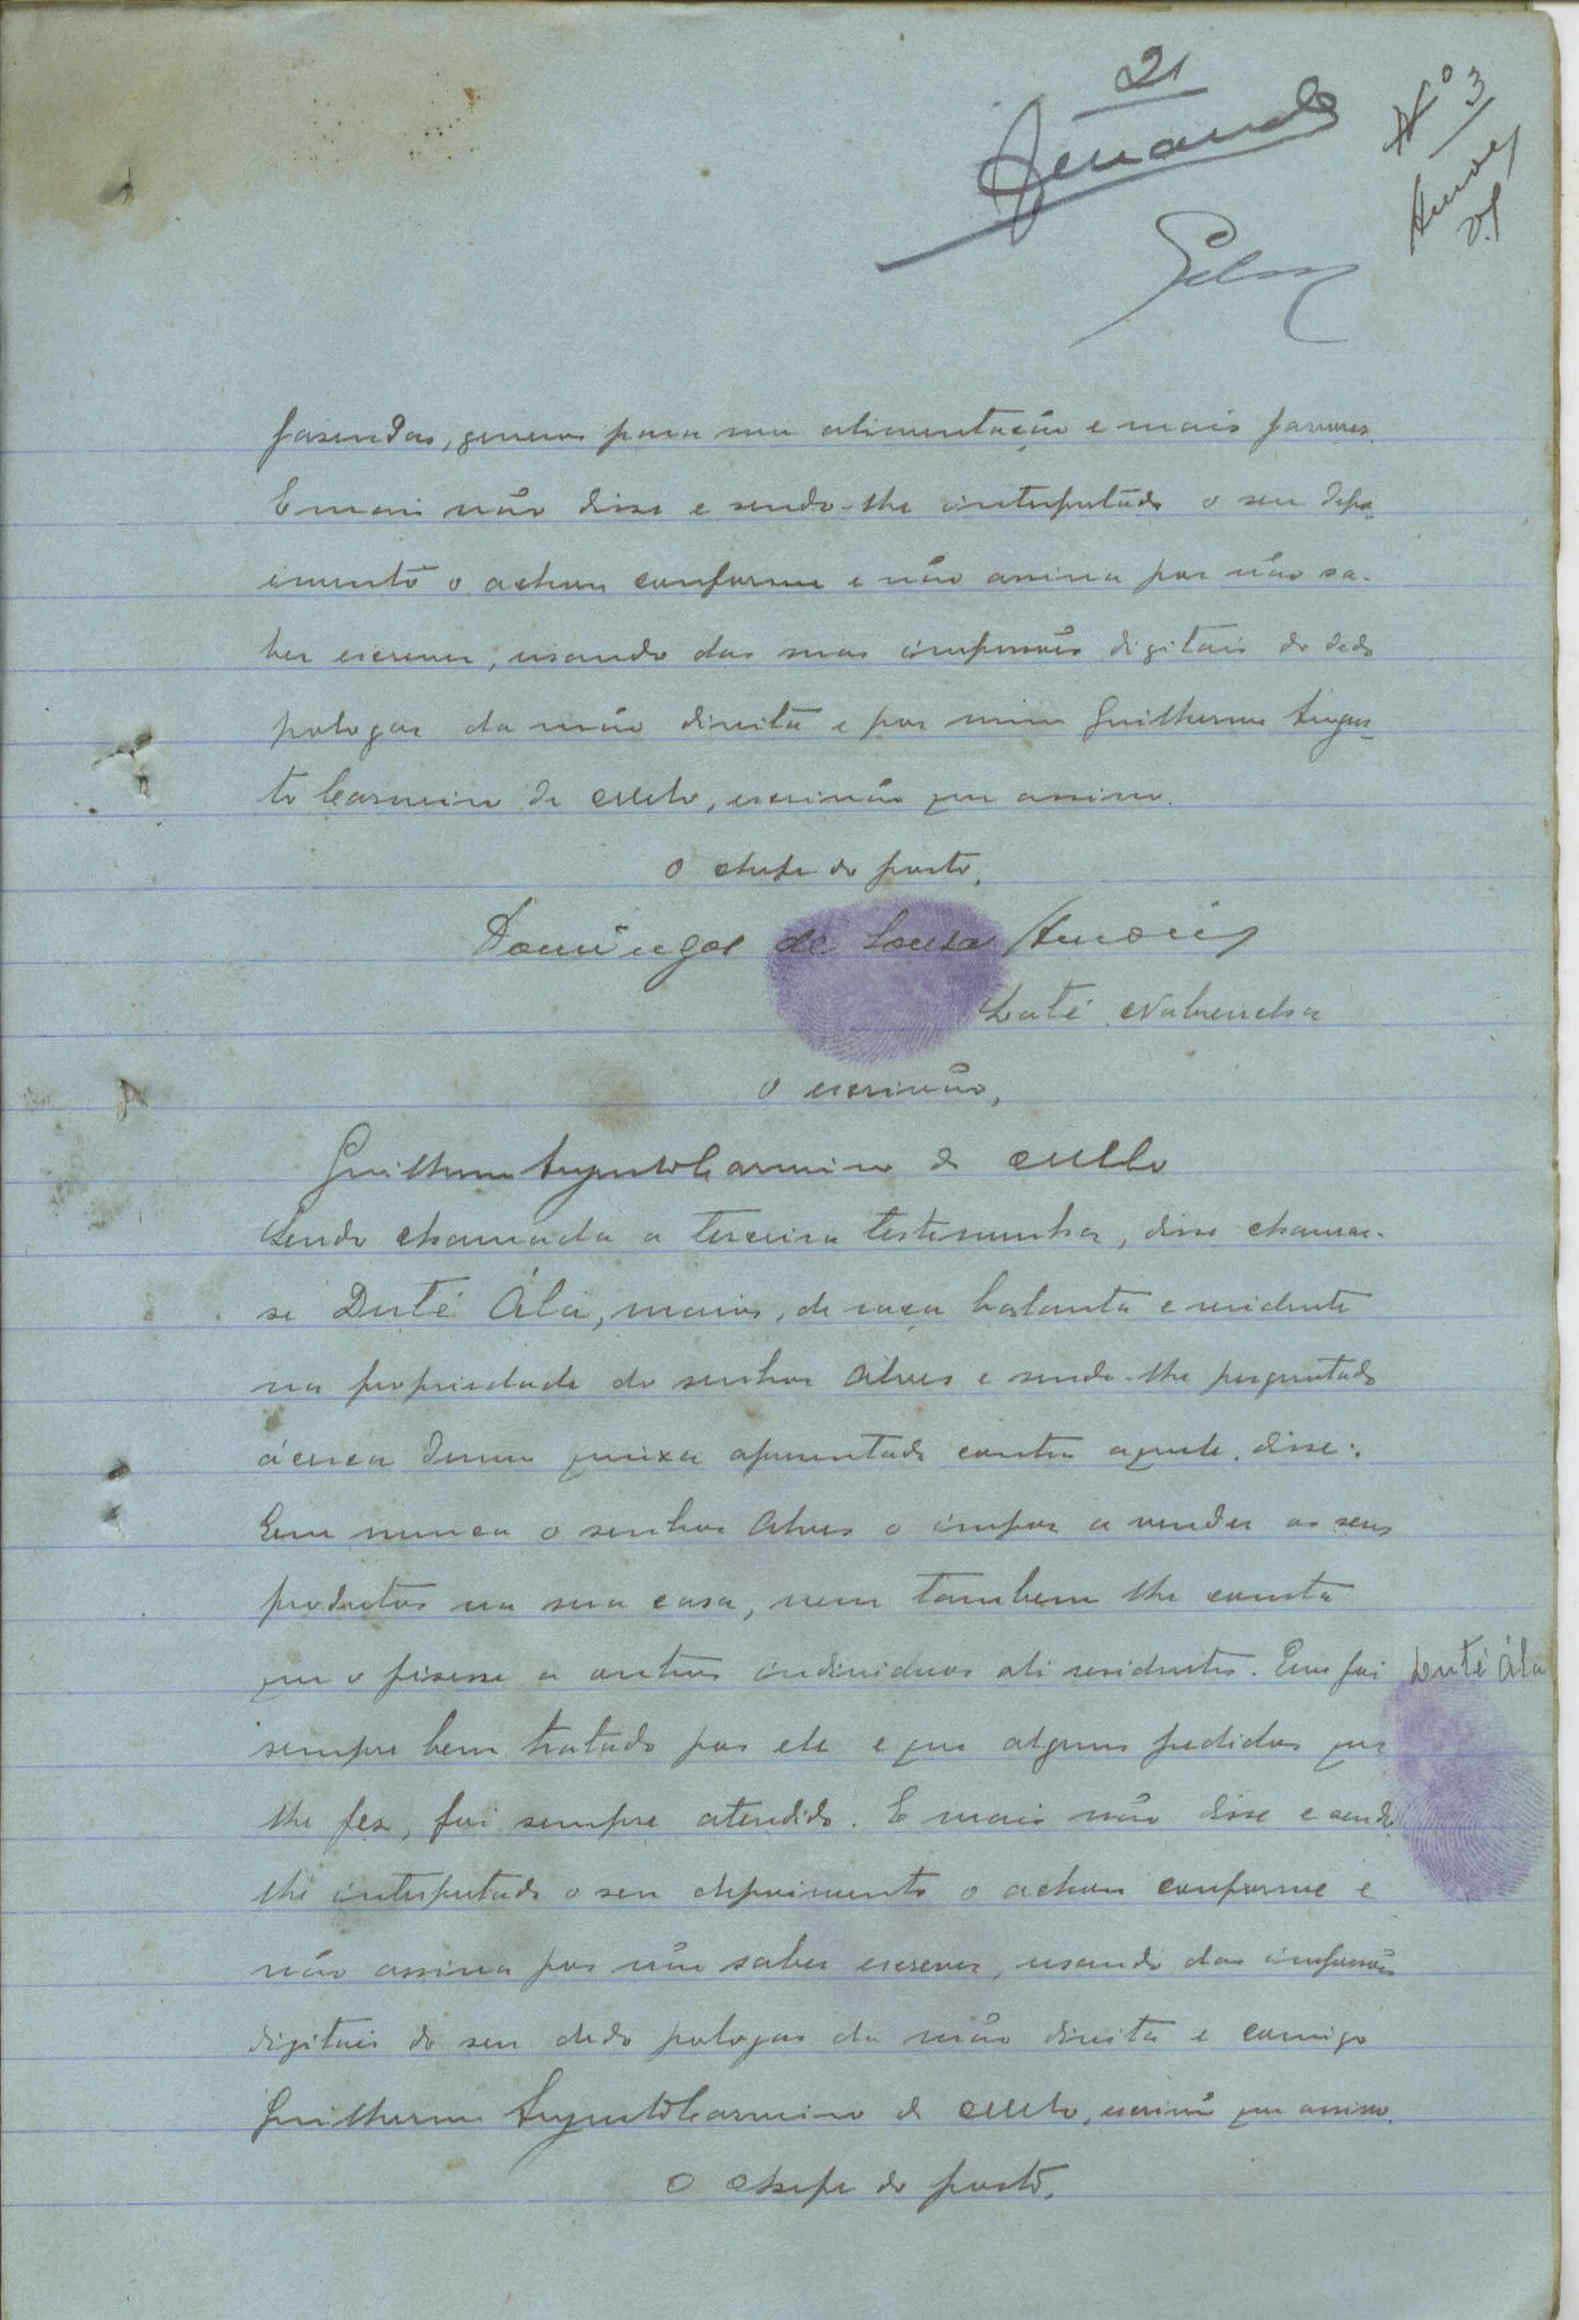 21
Nº 3
fasendas, generos para sua alimentação e mais favores.
E mais não disse e sendo-lhe interpretado o seu depo-
imento o achou conforme e não assina por não sa-
ber escrever, usando das suas impressões digitais do dedo
polegar da mão direita e por mim Guilherme Augus-
to Carneiro de Mello, escrivão que assino.
O chefe do posto,
Domingos de Sousa
Laté Nabendha
O escrivão,
Guilherme Augusto Carneiro de Mello
Sendo chamada a terceira testemunha, disse chamar-
se Duté Álá, maior, de raça balanta e residente
na propriedade do senhor Alves e sendo-lhe perguntado
ácerca duma queixa apresentada contra aquele, disse:
Que nunca o senhor Alves o impoz a vender os seus
productos na sua casa, nem tambem lhe consta
que o fizesse a outros individuos ali residentes. Que foi
Duté Álá
sempre bem tratado por ele e que alguns pedidos que
lhe fez, foi sempre atendido. E mais não disse e sendo-
lhe interpretado o seu depoimento o achou conforme e
não assina por não saber escrever, usando das impressões
digitais do seu dedo polegar da mão direita e comigo
Guilherme Augusto Carneiro de Mello, escrivão que assino.
O chefe do posto,